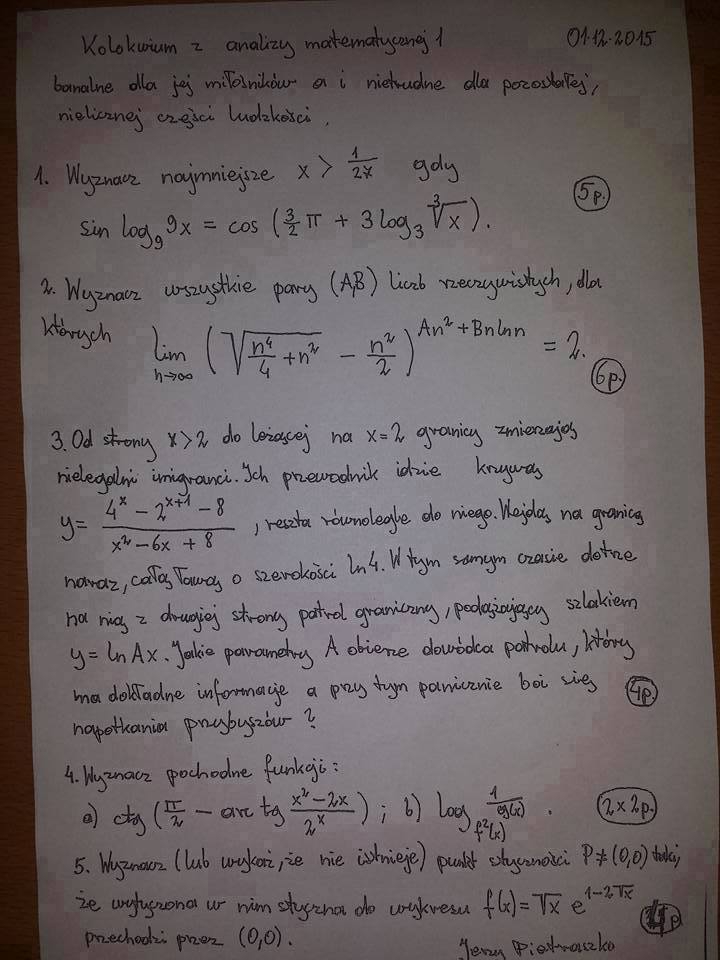 Kolokwium z analizy matematycznej 1 01.12.2015
banalne dla jej miłośników a i nietrudne dla pozostałej,
nielicznej części ludzkości.
1. Wyznacz najmniejsze x > 1/2x gdy
sin log₉ 9x = cos (3/2 π + 3 log₃ ∛x). 5p.
2. Wyznacz wszystkie pary (A,B) liczb rzeczywistych, dla
których lim n→∞ (√(n⁴/4 + n²) − n²/2)^(An² + Bn ln n) = 2. 6p.
3. Od strony x>2 do leżącej na x=2 granicy zmierzają
nielegalni imigranci. Ich przewodnik idzie krzywą
y = (4ˣ − 2ˣ⁺¹ − 8)/(x² − 6x + 8), reszta równolegle do niego. Wejdą na granicę
naraz, całą ławą o szerokości ln4. W tym samym czasie dotrze
na nią z drugiej strony patrol graniczny, podążający szlakiem
y = ln Ax. Jakie parametry A obierze dowódca patrolu, który
ma dokładne informacje a przy tym panicznie boi się
napotkania przybyszów? 4p.
4. Wyznacz pochodne funkcji:
a) ctg (π/2 − arc tg (x² − 2x)/2ˣ); b) log_f²(x) 1/g(x). 2×2p.
5. Wyznacz (lub wykaż, że nie istnieje) punkt styczności P≠(0,0) taki,
że wytyczona w nim styczna do wykresu f(x) = √x e^(1−2√x)
przechodzi przez (0,0). 4p
Jerzy Pietraszko